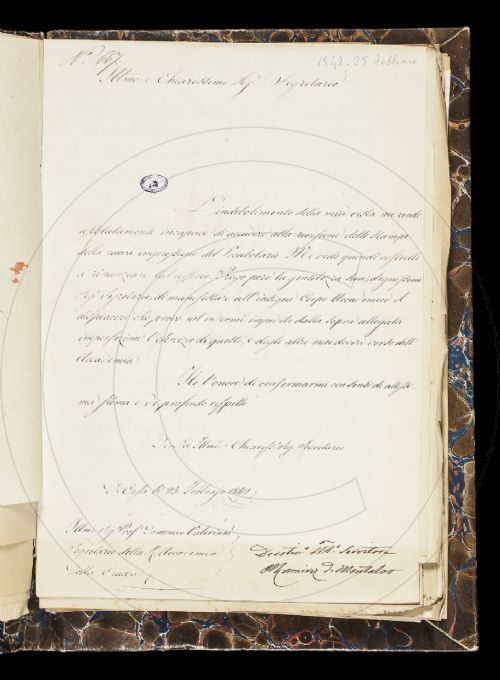 Nº 667.
1842. 25 Febbraio
Illmo e Chiarissimo Sig. Segretario
L'indebolimento della mia vista mi rende
assolutamente incapace di accudire alla revisione delle stampe
della nuova impressione del Vocabolario. Mi vedo quindi costretto
a rinunziare tal officio. Prego però la gentilezza sua, degnissimo
Sig. Segretario, di manifestare all'insigne Corpo Accademico il
dispiacere che provo nel vedermi impedito dalla sopra allegata
imperfezione l'esercizio di questo, e degli altri miei doveri verso dell'
Accademia.
Ho l'onore di confermarmi con sensi di altissi
ma stima e di profondo rispetto
Di Lei Illmo e Chiariss. Sig. Segretario
Di Casa li 23. Febbraio 1842
Illmo Sig. Prof. Domenico Valeriani
Segretario della R. Accademia
della Crusca
Servitore
Ramirez Di Montalvo